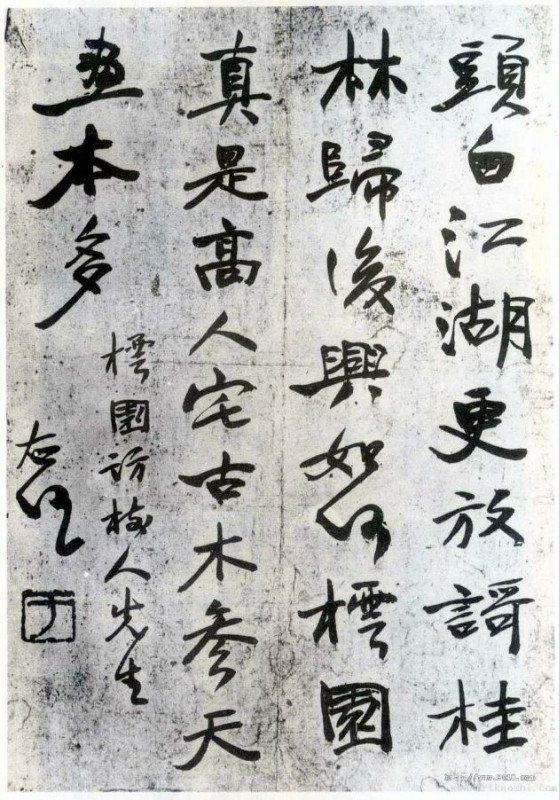 頭白江湖更放謌桂
林歸後興如何樗園
真是高人宅古木參天
畫本多
樗園訪人先生
右任